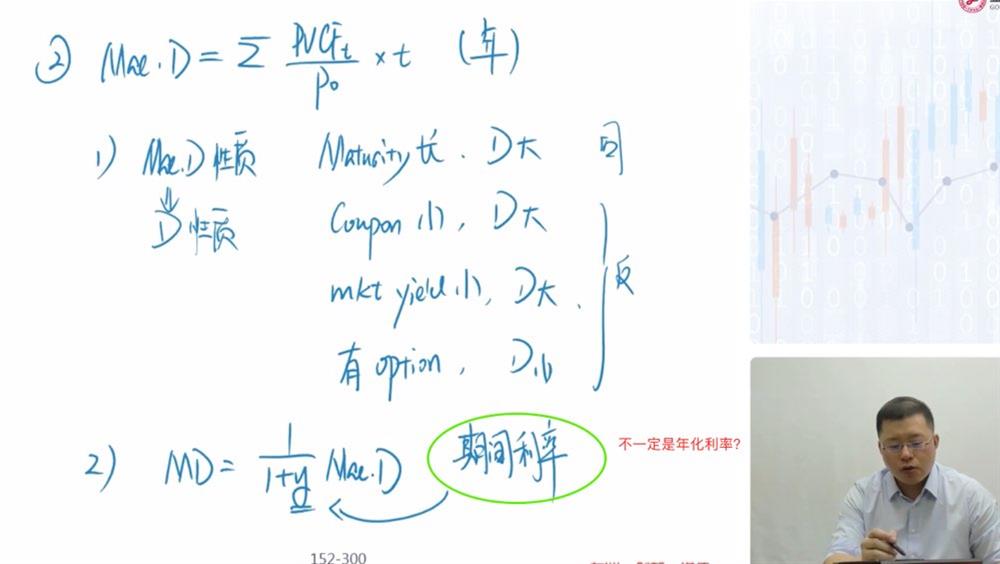 ② Mac.D = Σ PVCFt/P0 × t (年)
1) Mac.D性质 Maturity长. D大 同
⇓
D性质 Coupon小, D大
mkt yield小, D大. 反
有option, D小
2) MD = 1/1+y Mac.D 期间利率 不一定是年化利率?
152-300